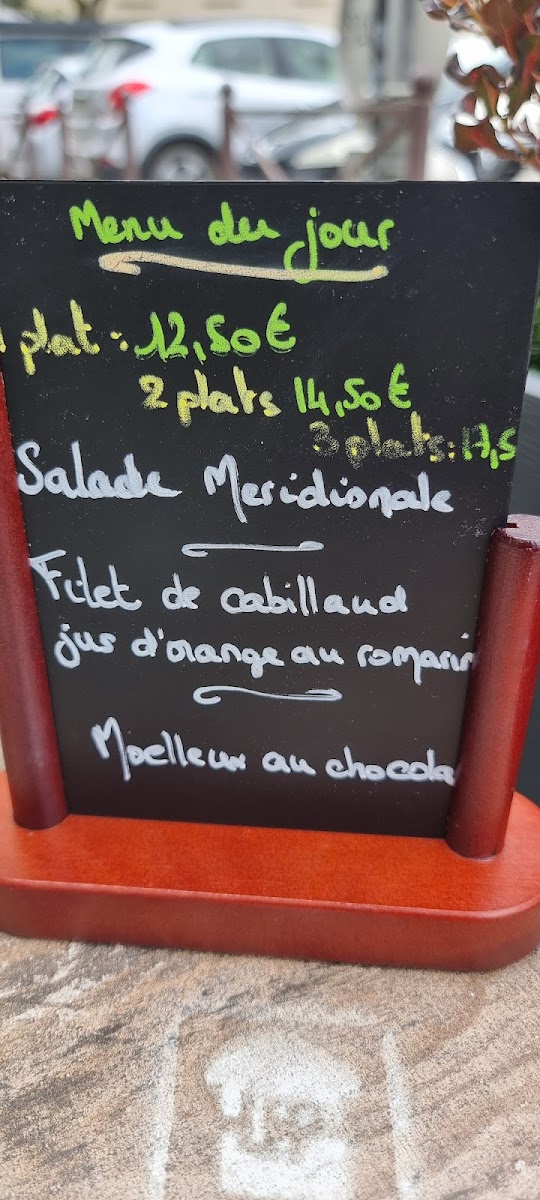 Menu du jour
1 plat : 12,50€
2 plats 14,50€
3 plats : 17,5
Salade Meridionale
Filet de cabillaud
jus d'orange au romarin
Moelleux au chocola